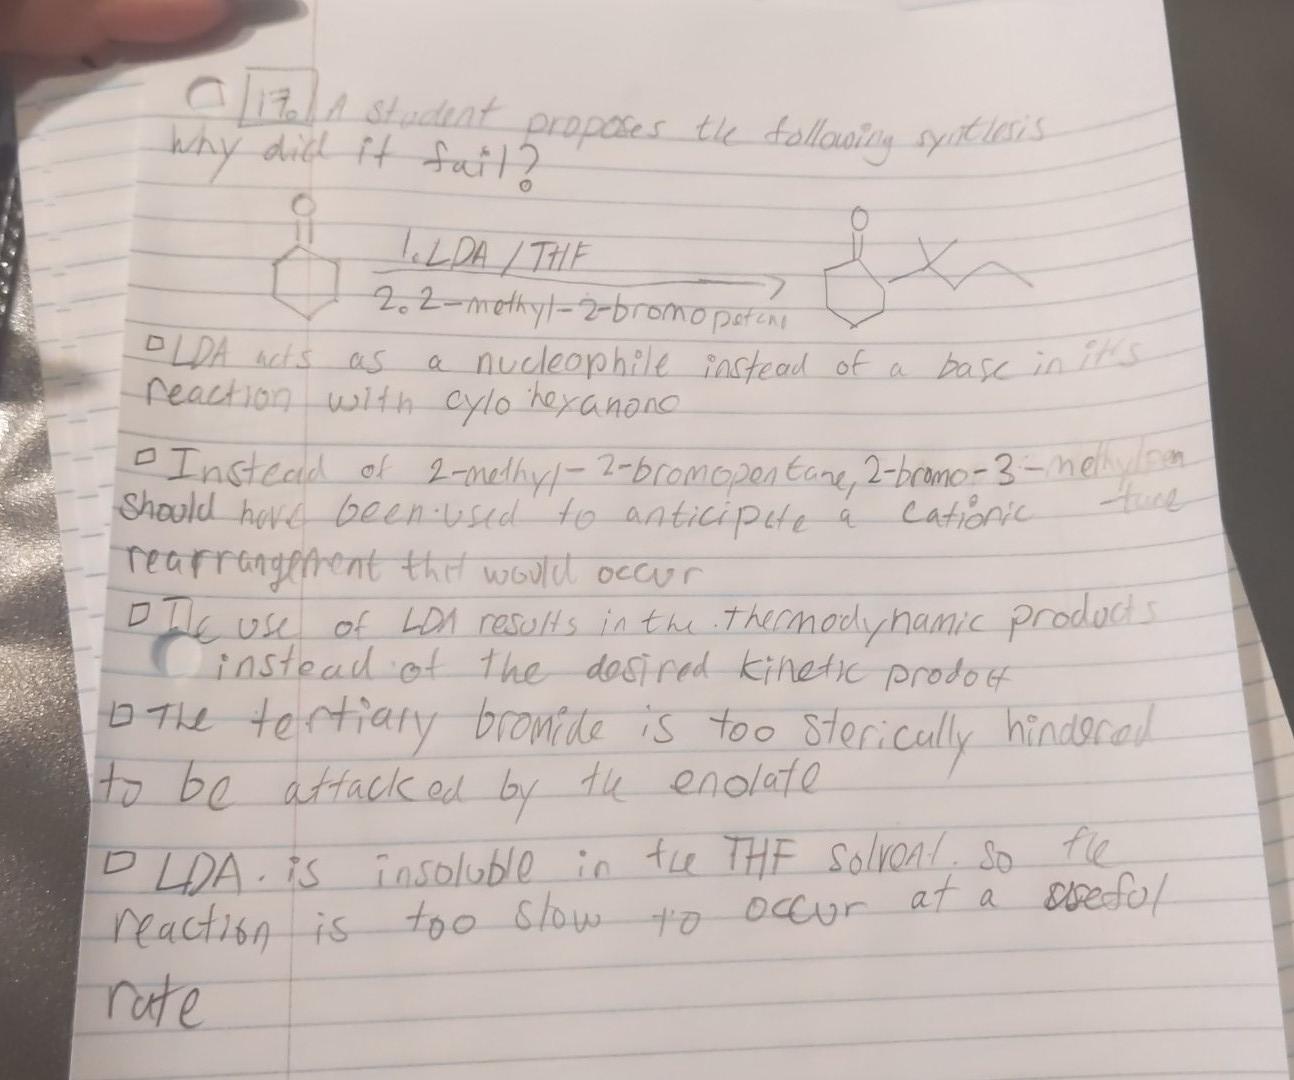 17. A student proposes the following synthesis
Why did it fail?
O
O
1. LDA / THF
2. 2-methyl-2-bromopetane
LDA acts as a nucleophile instead of a base in it's
reaction with cylohexanone
Instead of 2-methyl-2-bromopentane, 2-bromo-3-methylpen
should have been used to anticipate a cationic -tane
rearrangement that would occur
The use of LDA results in the thermodynamic products
instead of the desired kinetic product
The tertiary bromide is too sterically hindered
to be attacked by the enolate
LDA is insoluble in the THF solvent. So the
reaction is too slow to occur at a useful
rate